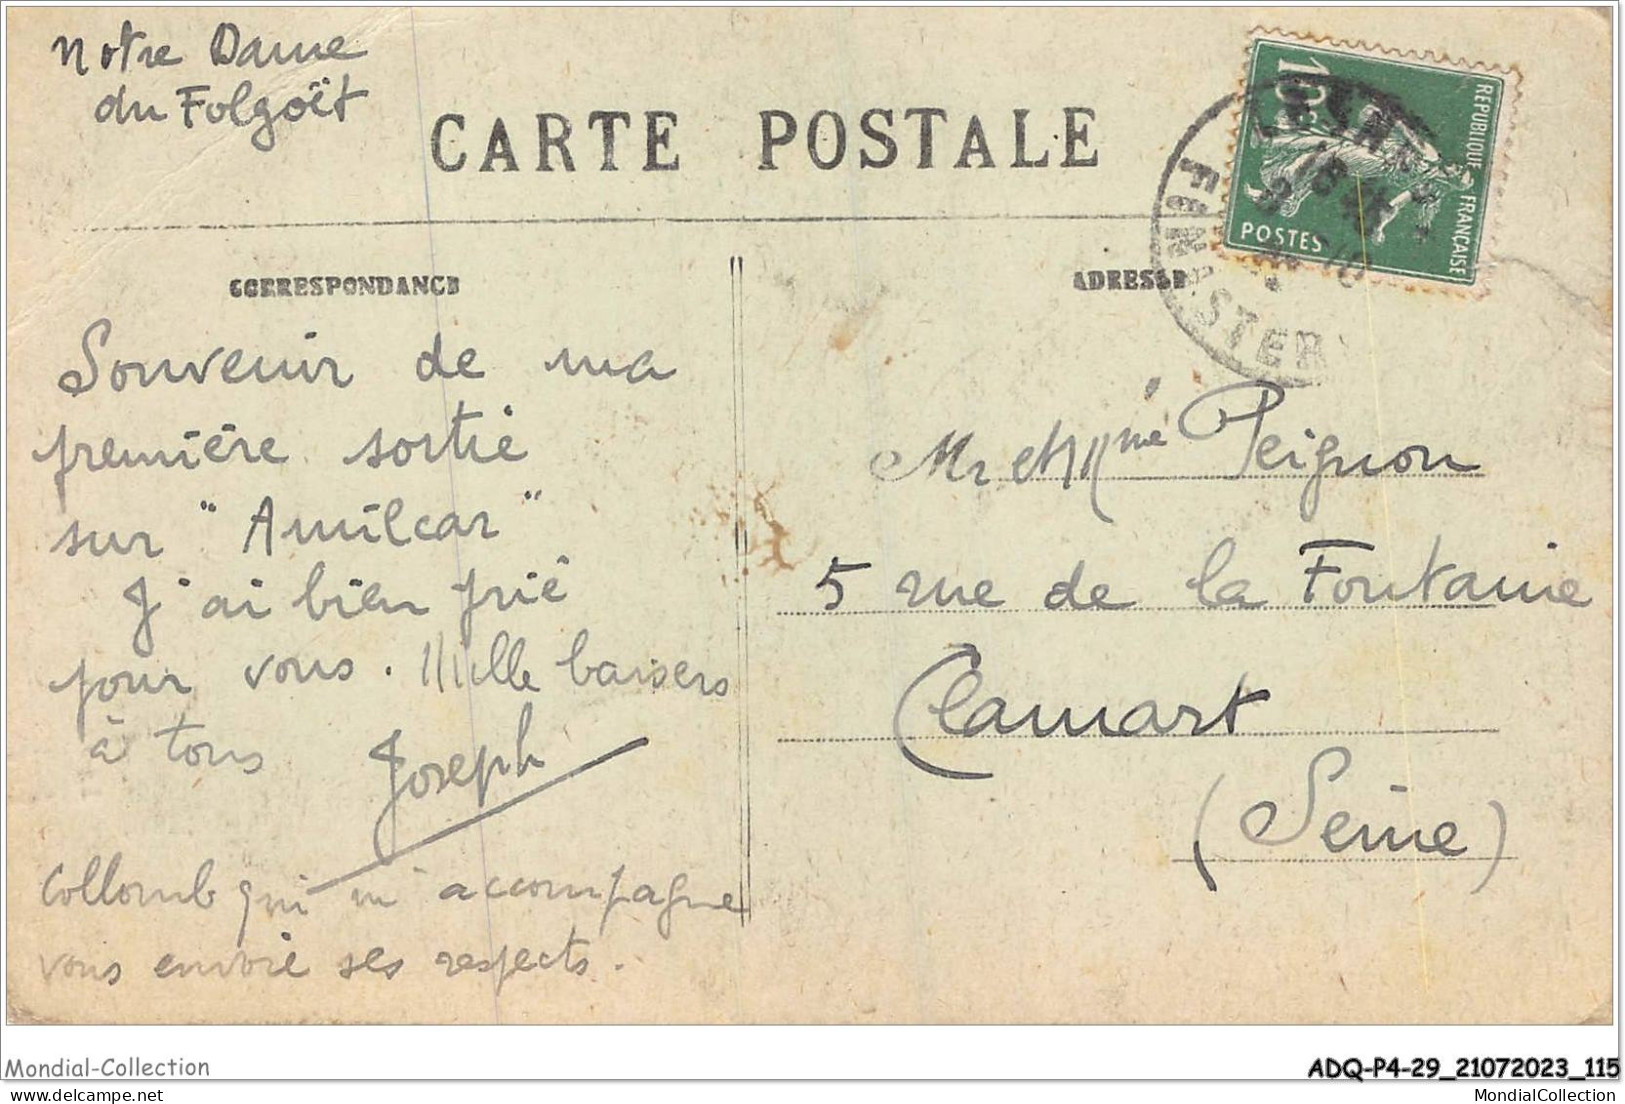 Notre Dame
du Folgoët
CARTE POSTALE
REPUBLIQUE FRANCAISE
10c
POSTES
FINISTERE
CORRESPONDANCE
ADRESSE
Souvenir de ma
première sortie
sur "Amilcar"
J'ai bien prié
pour vous. Mille baisers
à tous Joseph
Collomb qui m'accompagne
vous envoie ses respects.
Mr et Mme Peignon
5 rue de la Fontaine
Clamart
(Seine)
Mondial-Collection
ADQ-P4-29_21072023_115
MondialCollection